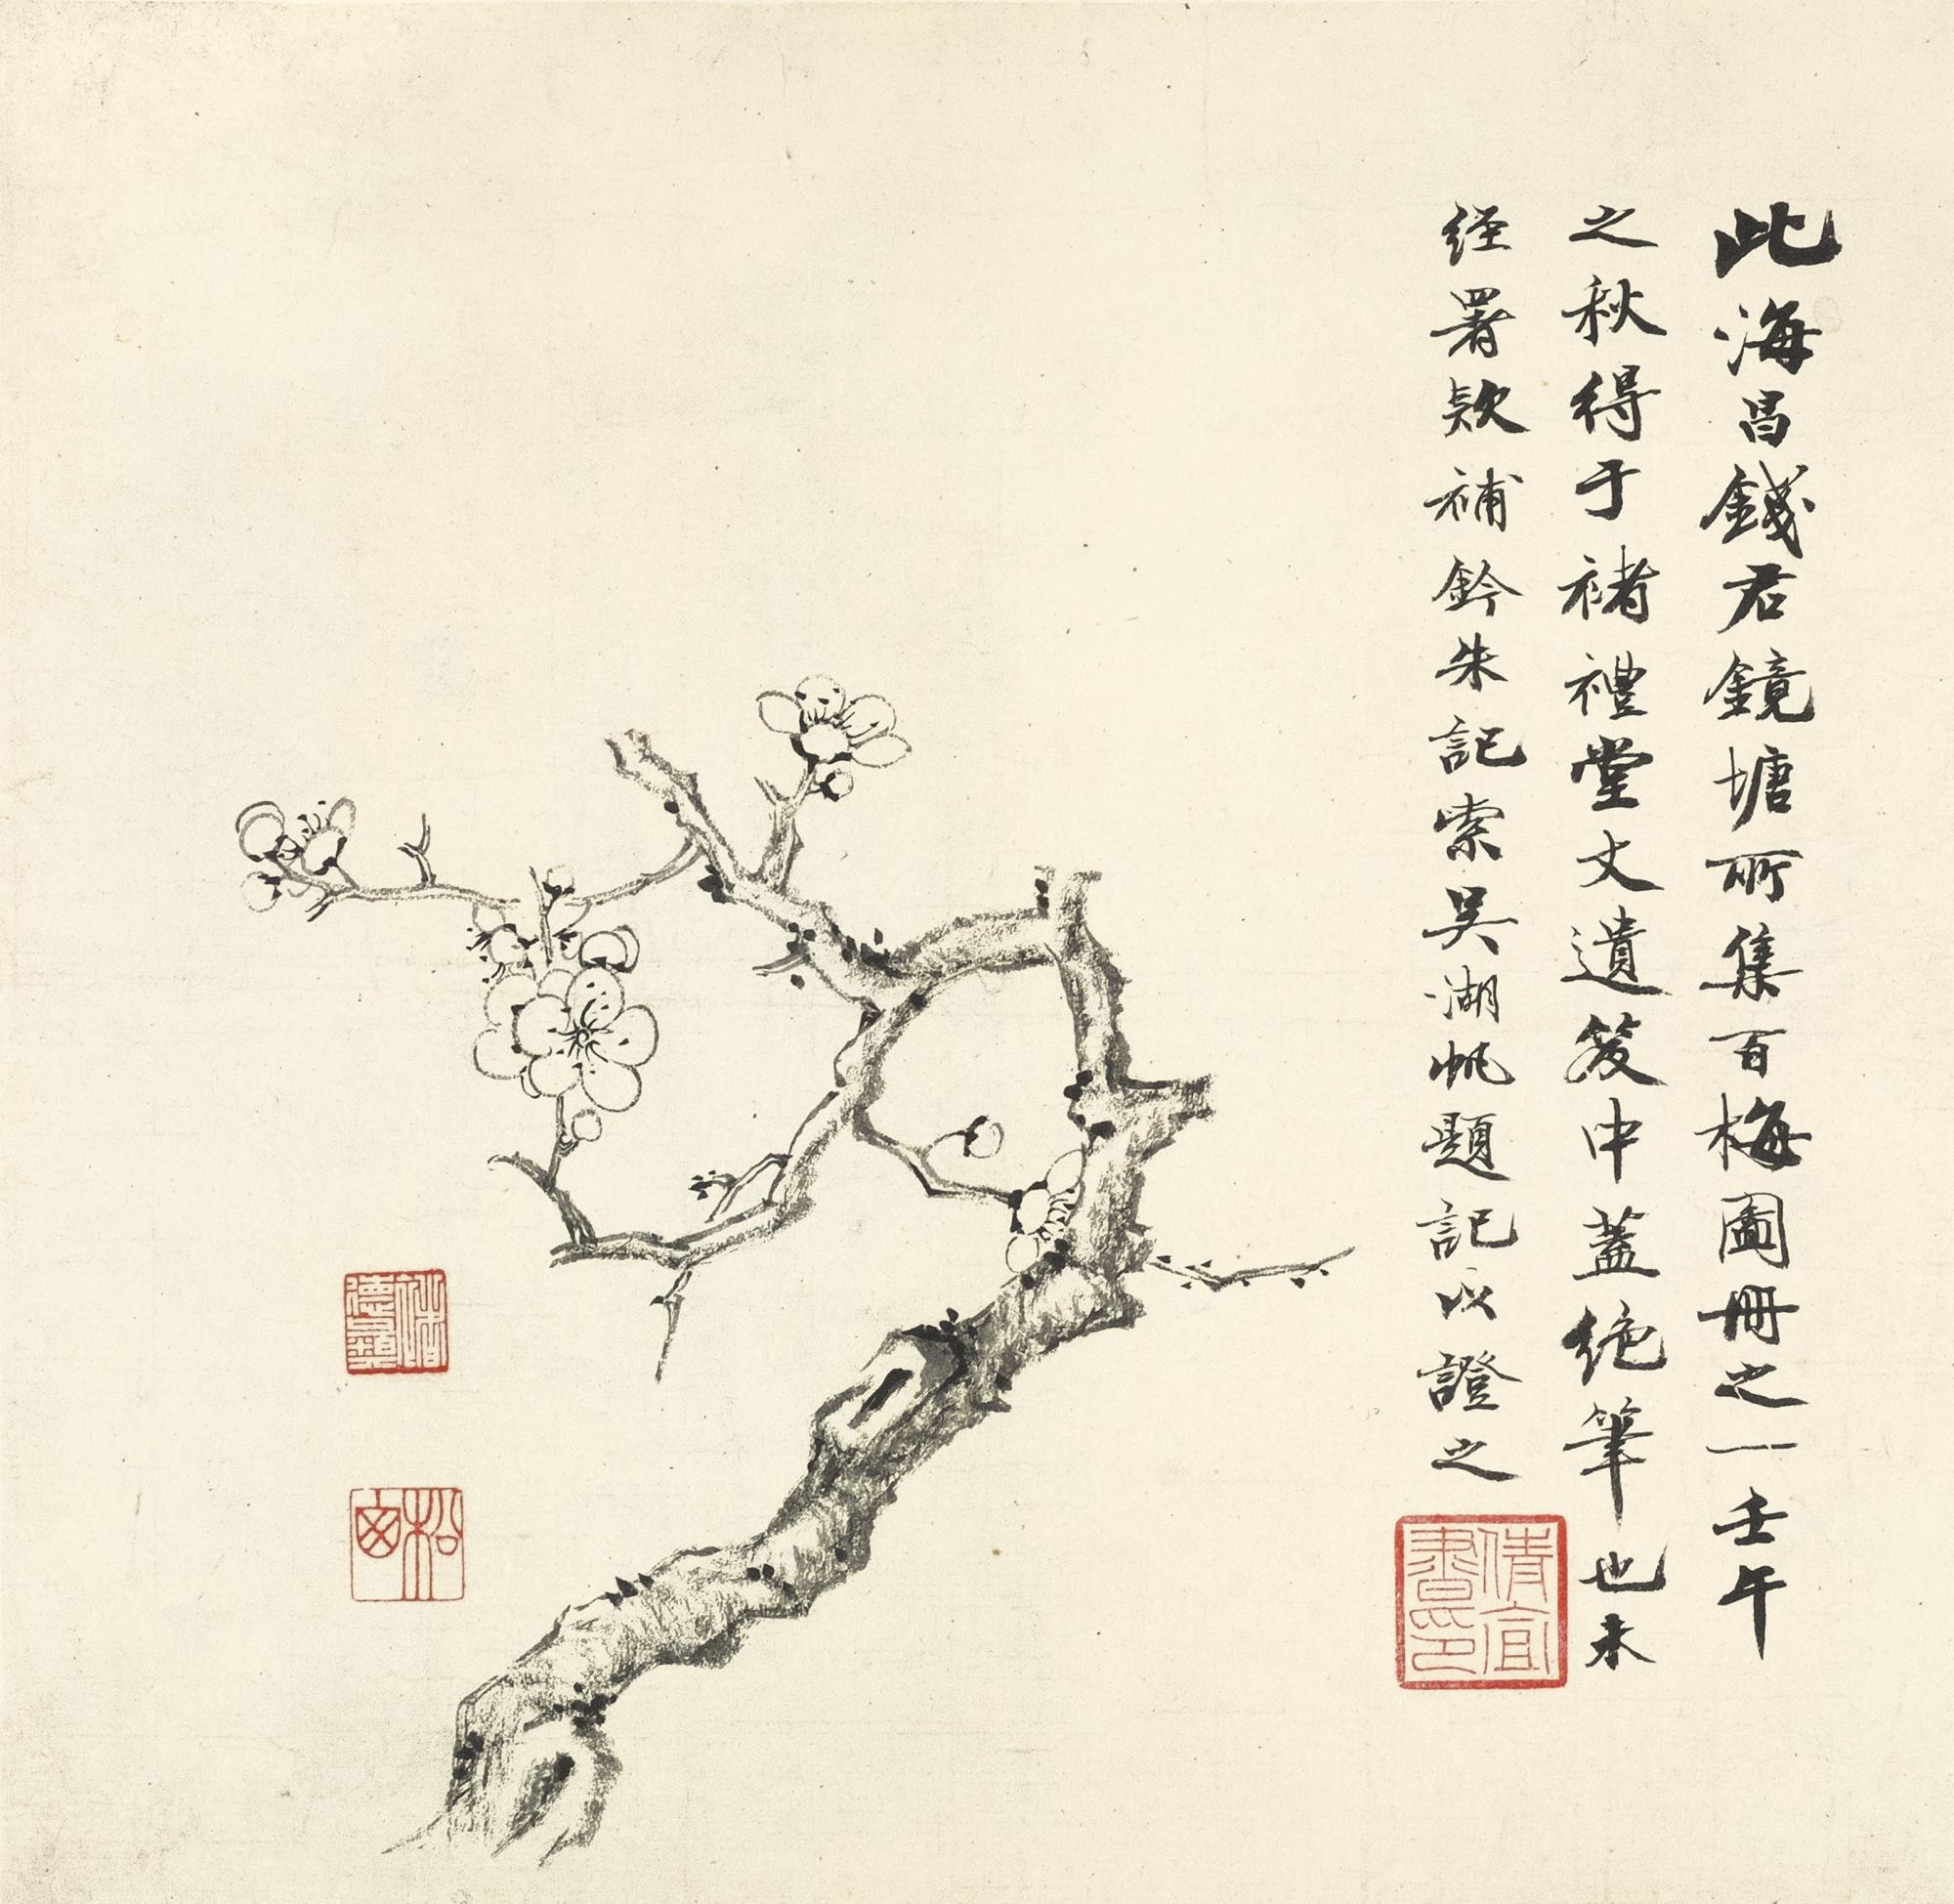 此海昌錢君鏡塘所集百梅圖冊之一壬午
之秋得于褚禮堂丈遺笈中蓋絶筆也未
经署欵補鈐朱記索吴湖帆題記以證之
倩宜
書印
褚
德彝
松
窗